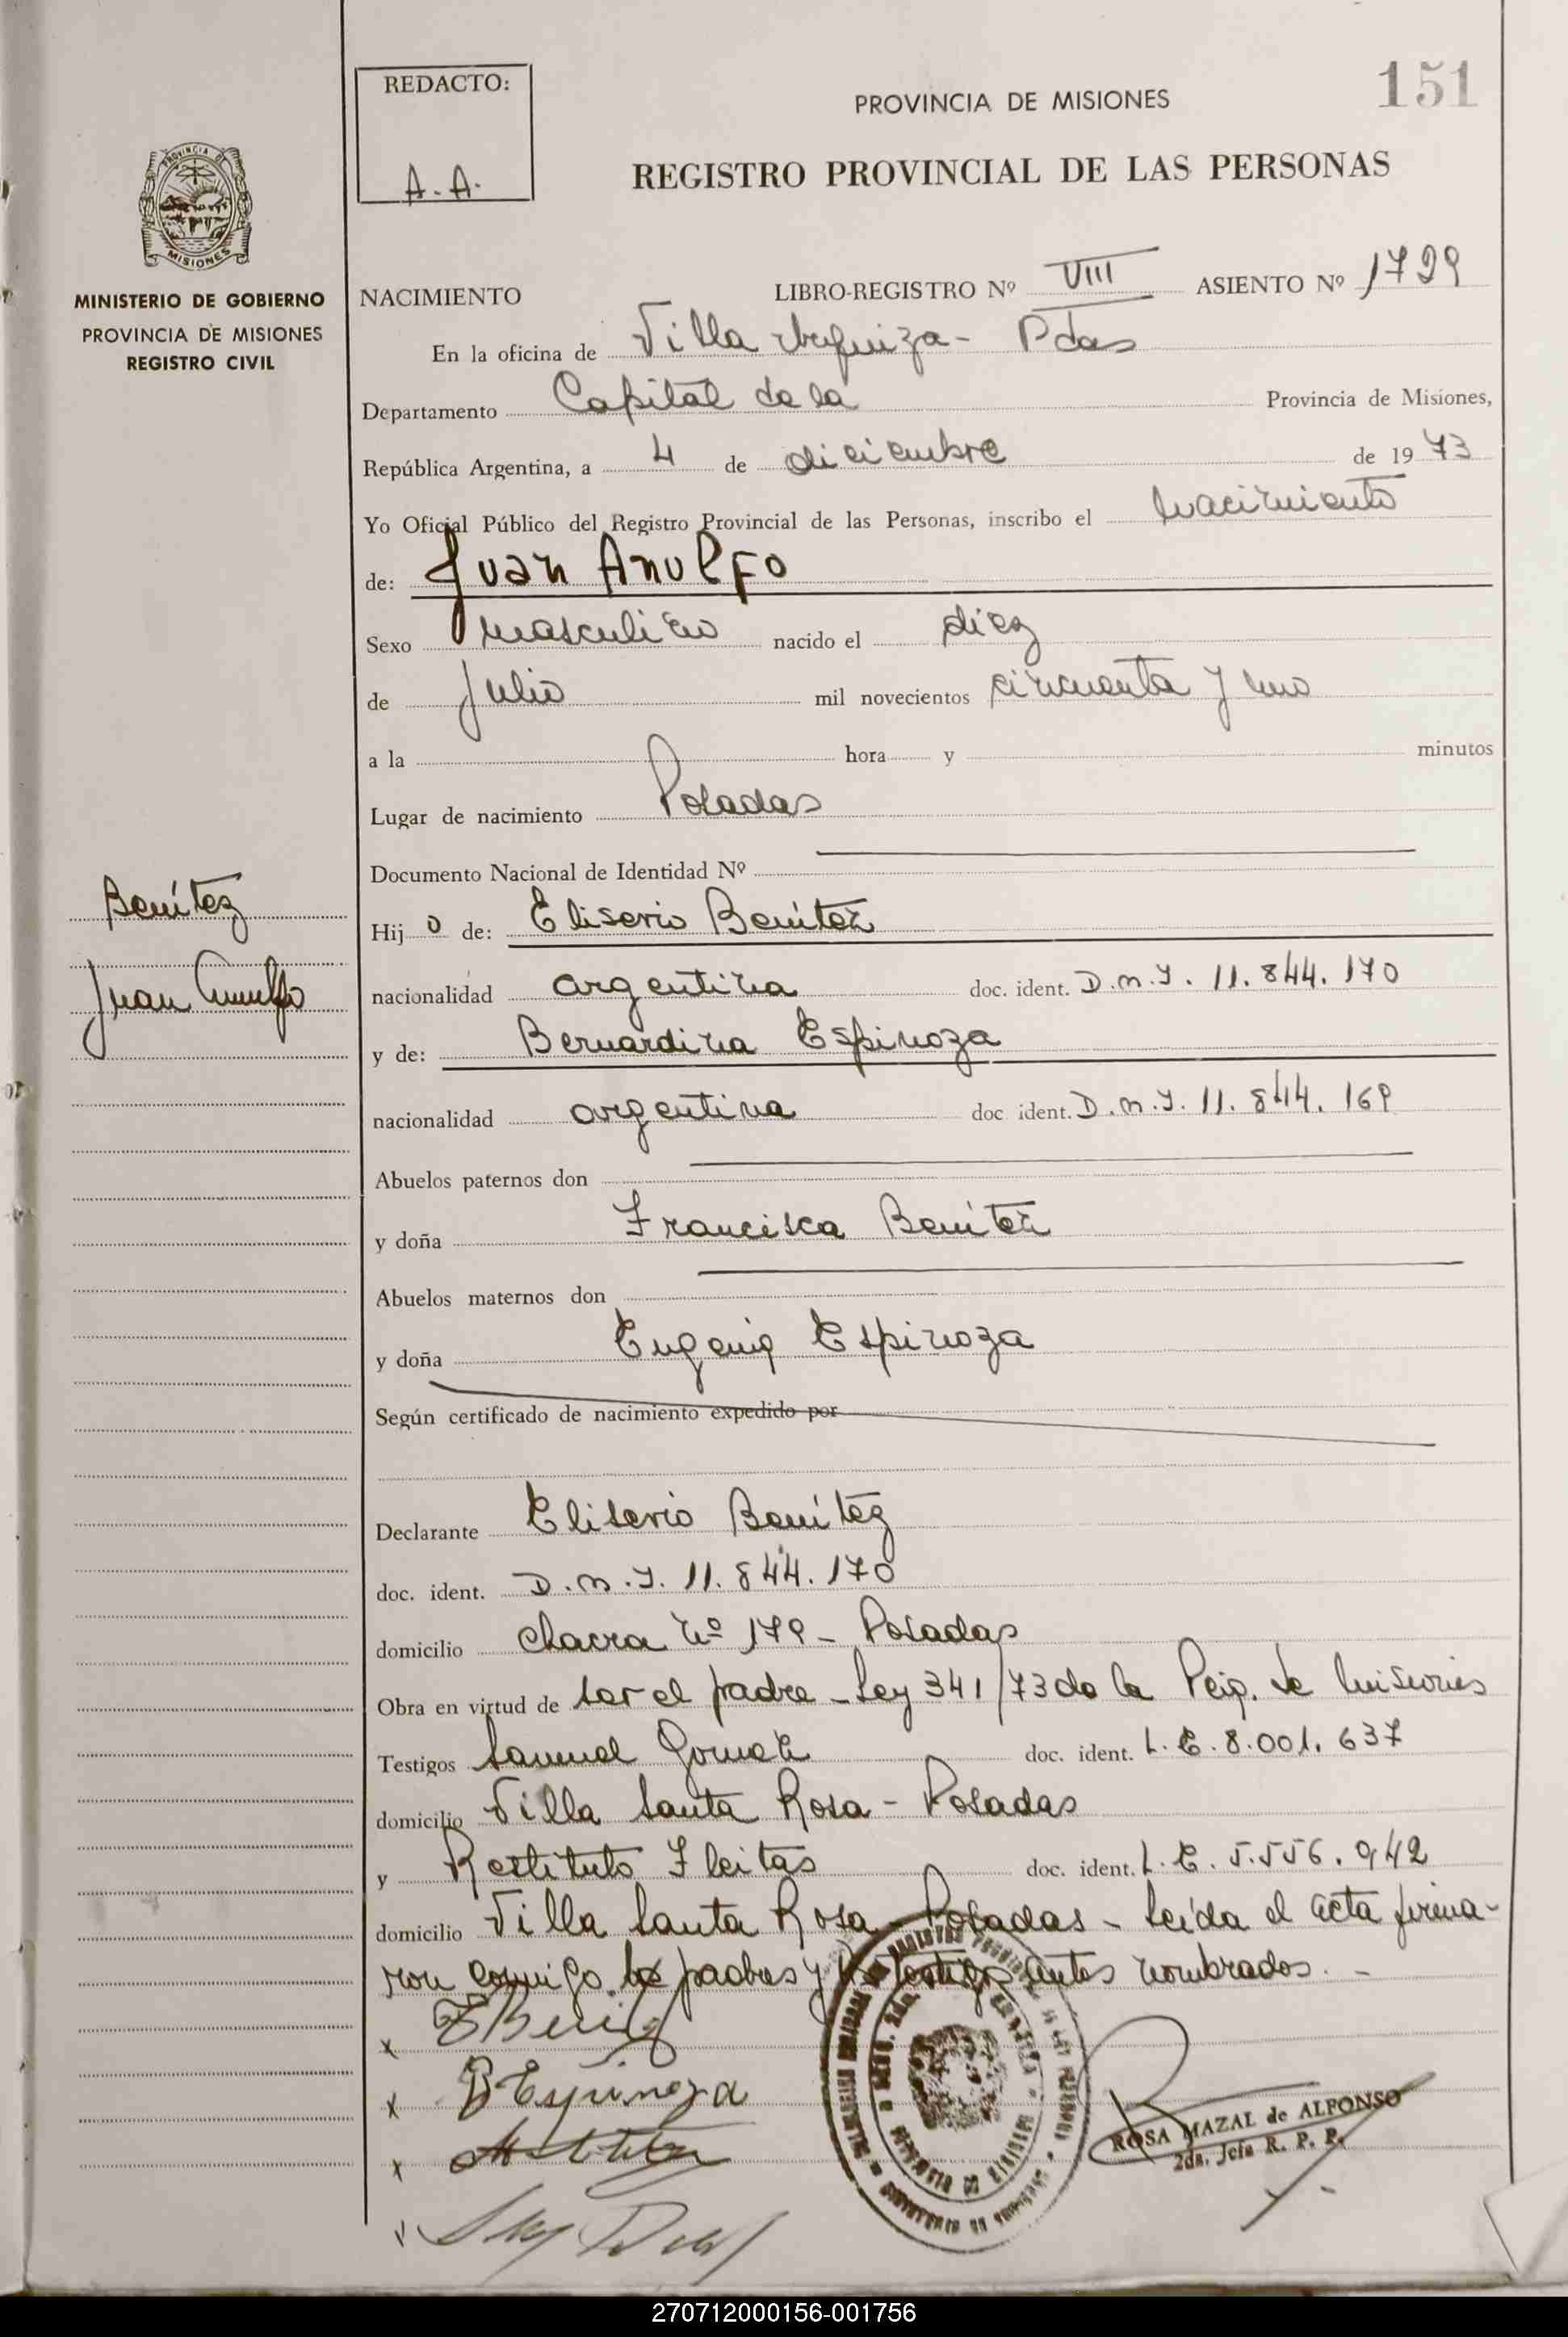 REDACTO:
A. A.
PROVINCIA DE MISIONES
151
REGISTRO PROVINCIAL DE LAS PERSONAS
PROVINCIA DE
MISIONES
MINISTERIO DE GOBIERNO
PROVINCIA DE MISIONES
REGISTRO CIVIL
NACIMIENTO LIBRO-REGISTRO Nº VIII ASIENTO Nº 1799
En la oficina de Villa Urquiza - Pdas
Departamento Capital de la Provincia de Misiones,
República Argentina, a 4 de diciembre de 1973
Yo Oficial Público del Registro Provincial de las Personas, inscribo el nacimiento
de: Juan Anulfo
Sexo masculino nacido el diez
de Julio mil novecientos cincuenta y uno
a la hora y minutos
Lugar de nacimiento Posadas
Documento Nacional de Identidad Nº
Benítez
Juan Anulfo
Hijo de: Eliserio Benítez
nacionalidad argentina doc. ident. D.N.I. 11.844.170
y de: Bernardina Espinoza
nacionalidad argentina doc ident. D.N.I. 11.844.169
Abuelos paternos don
y doña Francisca Benítez
Abuelos maternos don
y doña Eugenia Espinoza
Según certificado de nacimiento expedido por
Declarante Eliserio Benítez
doc. ident. D.N.I. 11.844.170
domicilio chacra Nº 179 - Posadas
Obra en virtud de ser el padre - Ley 341/73 de la Pcia. de Misiones
Testigos Samuel Gomez doc. ident. L.E. 8.001.637
domicilio Villa Santa Rosa - Posadas
y Restituto Fleitas doc. ident. L.E. 5.556.942
domicilio Villa Santa Rosa - Posadas - Leída el acta firma-
ron conmigo los padres y los testigos antes nombrados. -
x EBenitez
x BEspinoza
x
ROSA MAZAL de ALFONSO
2da. Jefa R. P. P.
270712000156-001756